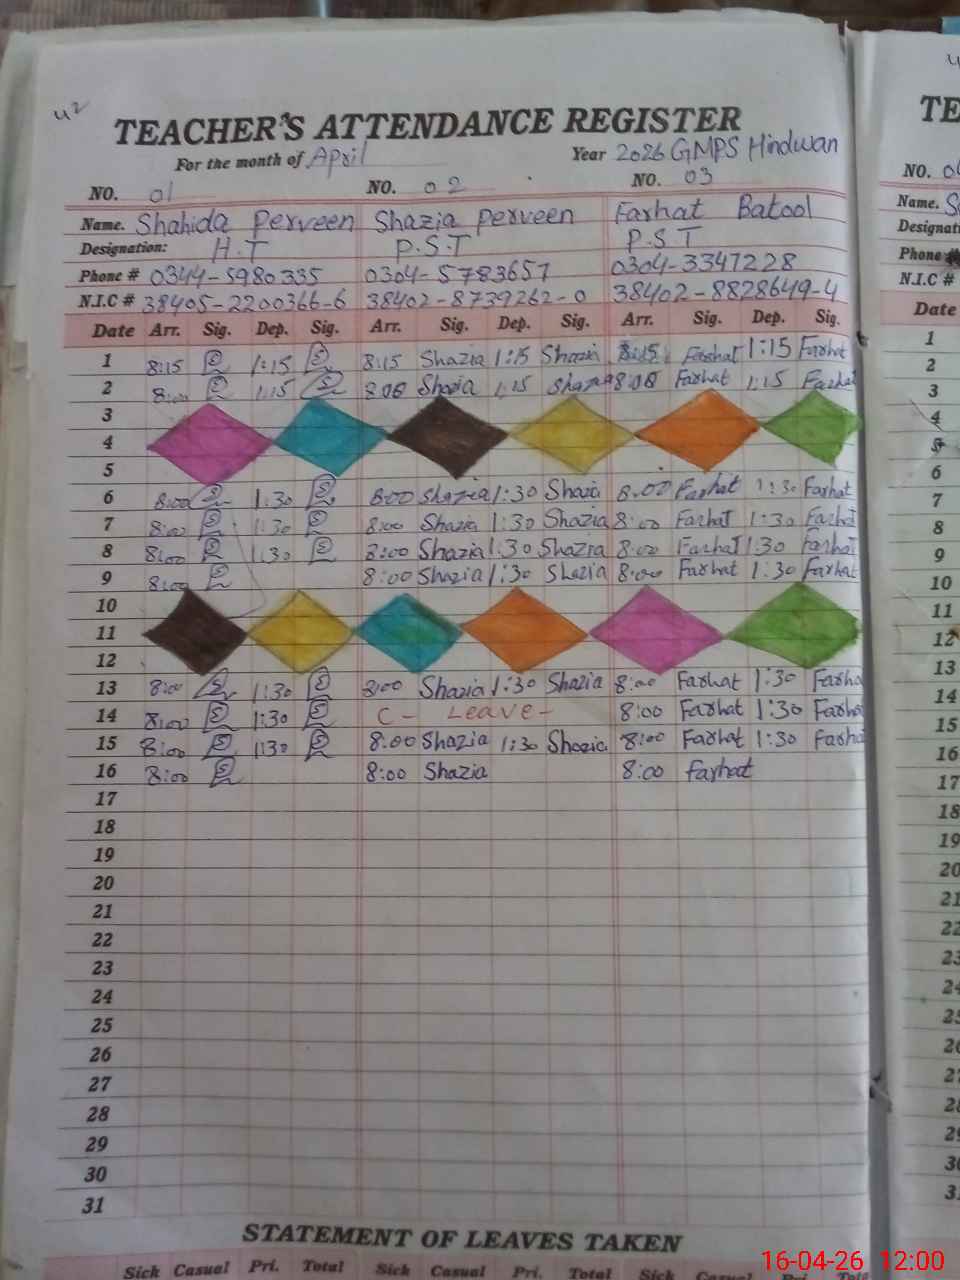 42
TEACHER'S ATTENDANCE REGISTER
For the month of April Year 2026 GMPS Hindwan
NO. 01 NO. 02 NO. 03
Name. Shahida Perveen Shazia Perveen Farhat Batool
Designation: H.T P.S.T P.S T
Phone # 0344-5980335 0304-5783657 0304-3347228
N.I.C # 38405-2200366-6 38402-8739262-0 38402-8828649-4
Date Arr. Sig. Dep. Sig. Arr. Sig. Dep. Sig. Arr. Sig. Dep. Sig.
1 8:15 1:15 8:15 Shazia 1:15 Shazia 8:15 Farhat 1:15 Farhat
2 8:00 1:15 8:08 Shazia 1:15 Shazia 8:08 Farhat 1:15 Farhat
3
4
5
6 8:00 1:30 8:00 Shazia 1:30 Shazia 8:00 Farhat 1:30 Farhat
7 8:00 1:30 8:00 Shazia 1:30 Shazia 8:00 Farhat 1:30 Farhat
8 8:00 1:30 8:00 Shazia 1:30 Shazia 8:00 Farhat 1:30 Farhat
9 8:00 8:00 Shazia 1:30 Shazia 8:00 Farhat 1:30 Farhat
10
11
12
13 8:00 1:30 8:00 Shazia 1:30 Shazia 8:00 Farhat 1:30 Farha
14 8:00 1:30 C- Leave- 8:00 Farhat 1:30 Farha
15 8:00 1:30 8:00 Shazia 1:30 Shazia 8:00 Farhat 1:30 Farha
16 8:00 8:00 Shazia 8:00 Farhat
17
18
19
20
21
22
23
24
25
26
27
28
29
30
31
STATEMENT OF LEAVES TAKEN
Sick Casual Pri. Total Sick Casual Pri. Total Sick Casual Pri.
TE
NO.
Name.
Designat
Phone #
N.I.C #
Date
1
2
3
4
5
6
7
8
9
10
11
12
13
14
15
16
17
18
19
20
21
22
23
24
25
26
27
28
29
30
31
16-04-26 12:00